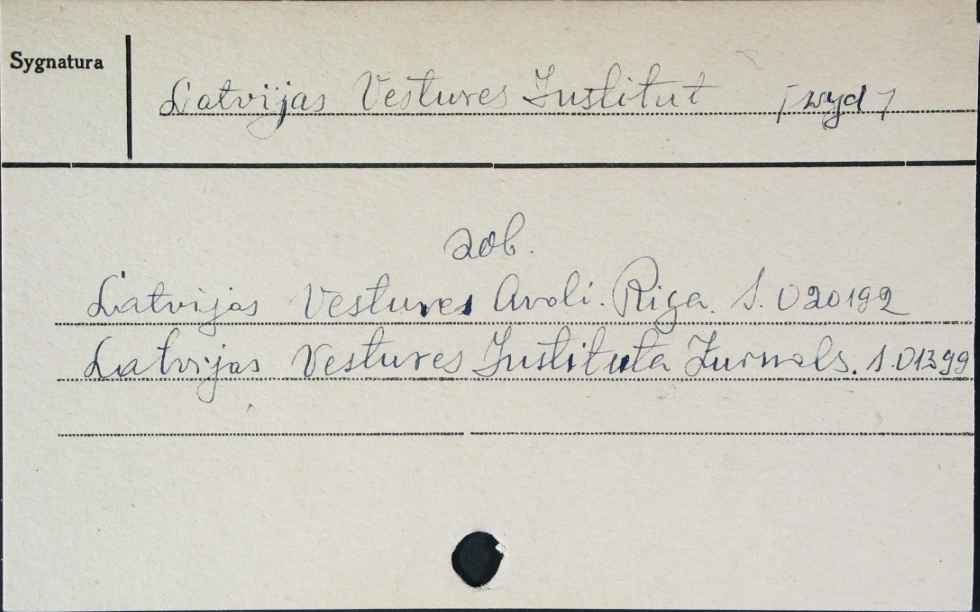 Sygnatura
Latvijas Vestures Institut [wyd]
zob.
Latvijas Vestures Avoli. Riga. S. 020192
Latvijas Vestures Instituta Zurnals. S. 01399